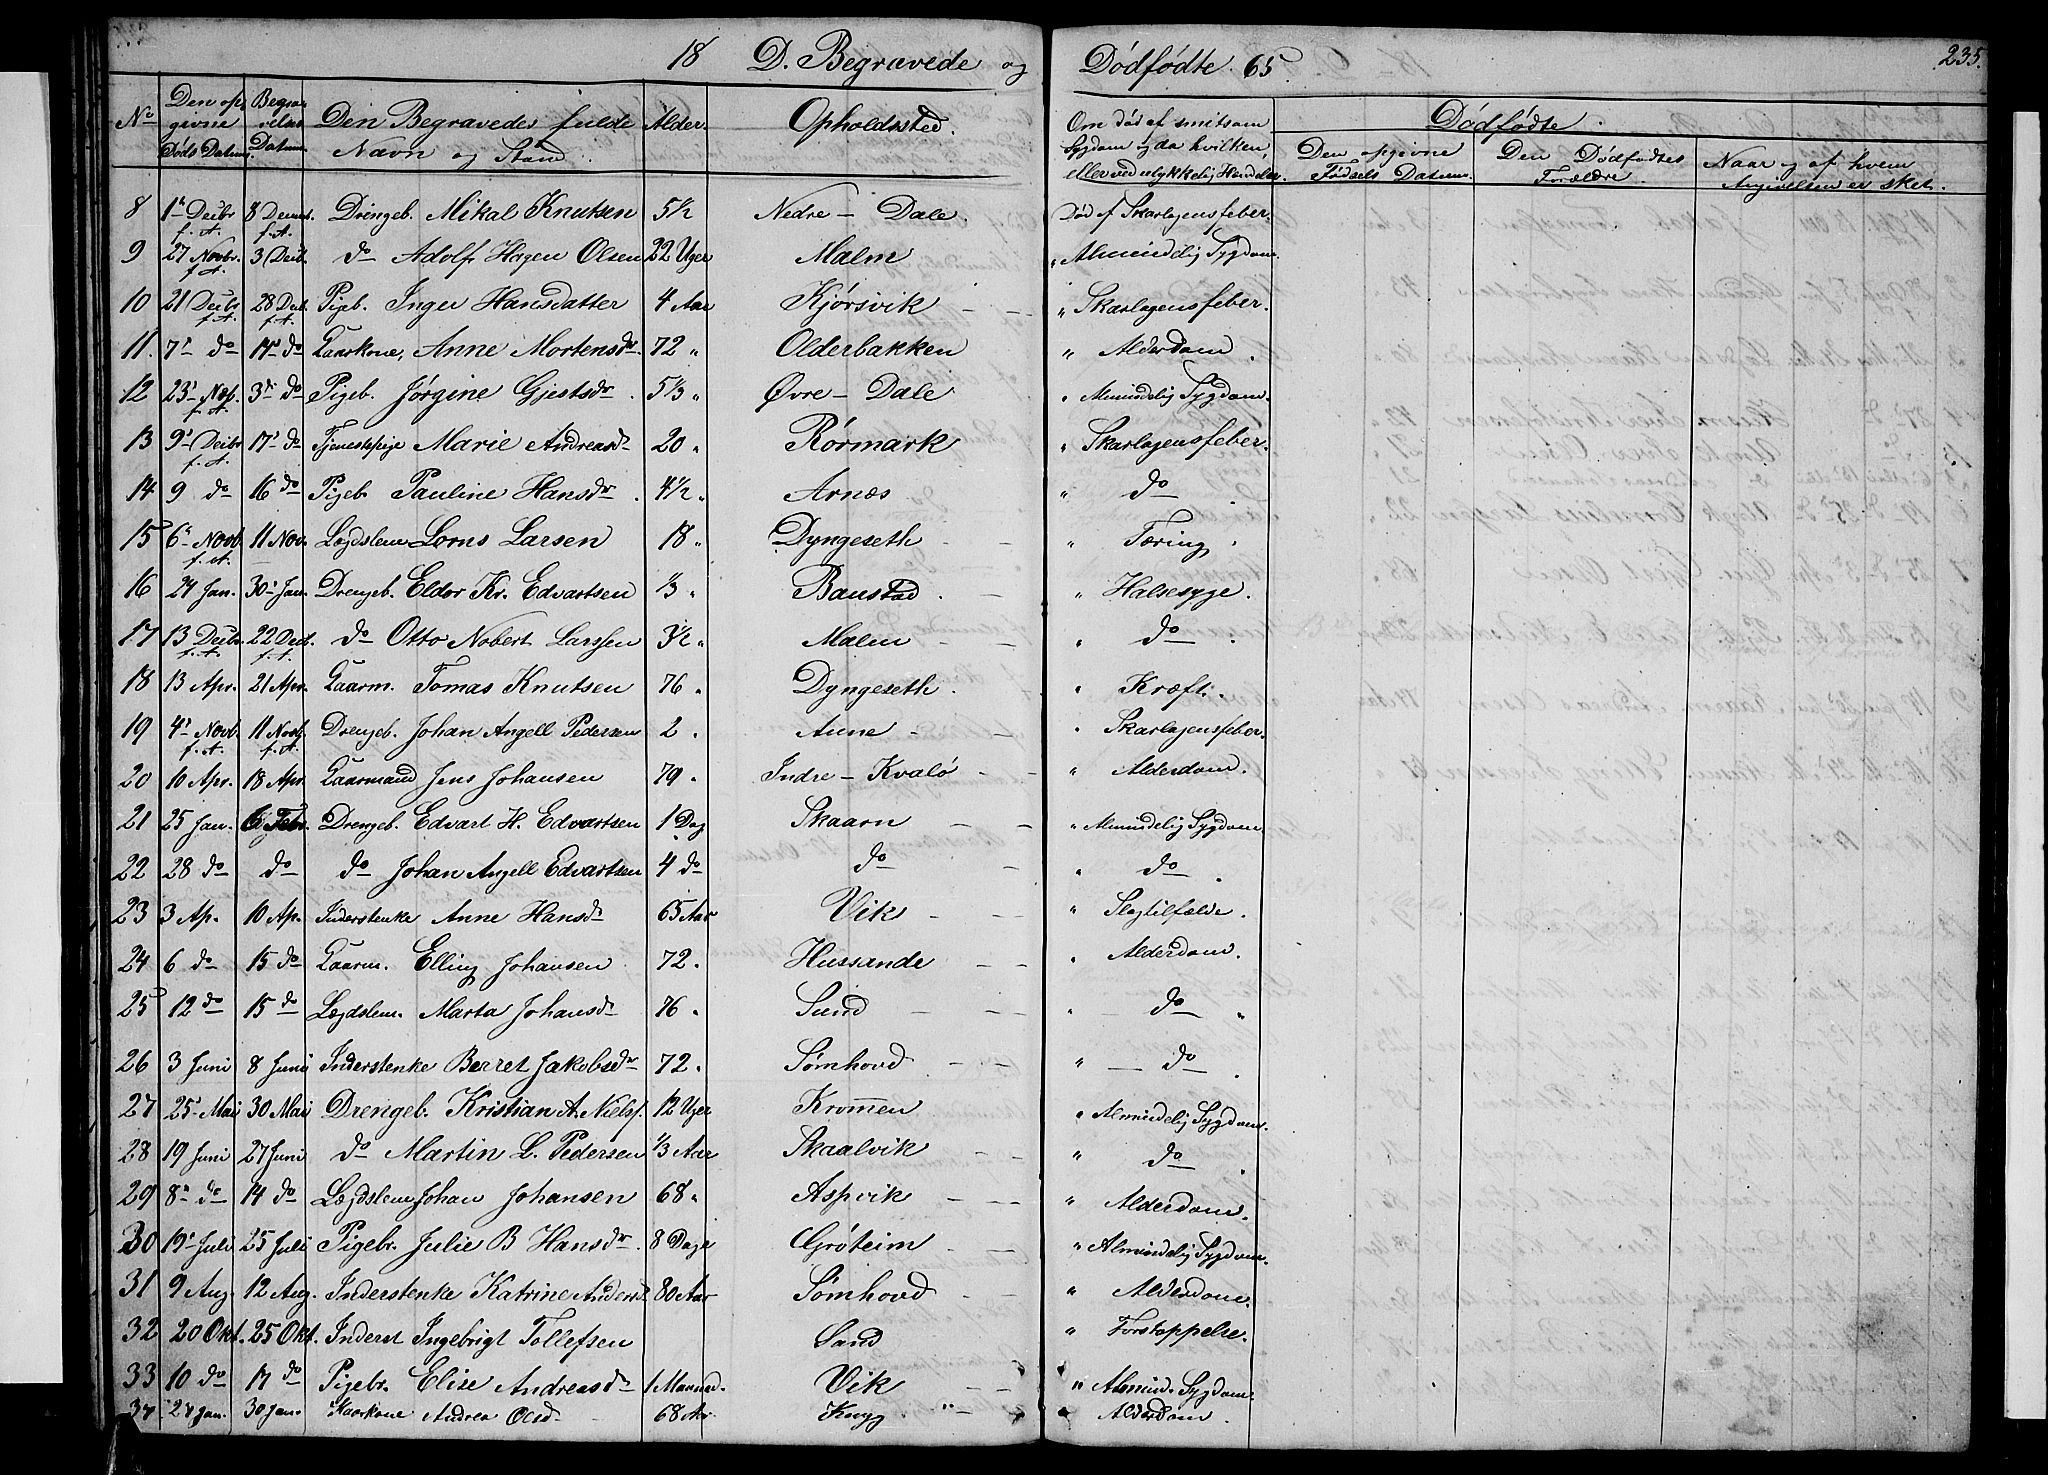 18 D. Begravede og Dödfödte. 65. 235.
No Den opgivne Döds Datum. Begravelses Datum. Den Begravedes fulde Navn og Stand. Alder. Opholdssted. Om död af smitsom Sygdom og da hvilken, eller ved ulykkelig Hændelse. Dödfödte.
Den opgivne Födsels Datum. Den Dödfödtes Forældre. Naar og af hvem Angivelsen er sket.
8 1 Decbr f. A. 8 f. A. Drengeb. Mikal Knutsen 5 1/2 Nedre - Dale. Död af Skarlagensfeber.
9 27 Novbr. f. A. 3 Decb. do Adolf Hagen Olsen 22 Uger Malm " Almindelig Sygdom.
10 21 Decbr f. A. 28 Decb. f. A. Pigeb. Inger Hansdatter 4 Aar Kjörsvik " Skarlagensfeber.
11. 7 do 14 do Gaarkone, Anne Mortensdr. 72 " Olderbakken " Alderdom.
12 23 Nov. f. A. 3 do Pigeb. Jörgine Gjertsdr 5 1/3 " Övre - Dale " Almindelig Sygdom.
13 9 Decbr f. A. 17 do Tjenestepige Marie Andreasdr 20 " Rörmark " Skarlagensfeber.
14 9 do 16 do Pigeb. Pauline Hansdr. 4 1/2 " Arnæs " do
15 6 Novb. f. A. 11 Nov. Lægdslem Lorns Larsen 18 " Dyngeseth " Tæring.
16 24 Jan. 30 Jan. Drengeb. Eldor Kr. Edvartsen 1/3 " Baustad. " Halsesyge.
17 13 Decbr. f. A. 22 Decb. f. A. do Otto Nobert Larssen 3 1/2 " Malm " do
18 13 Apr. 21 Apr. Gaarm. Tomas Knutsen 76 " Dyngeseth. " Kræft.
19 4 Novb. f. A. 11 Novb. f. A. Drengeb. Johan Angell Pedersen 2 " Aune " Skarlagensfeber.
20 10 Apr. 18 Apr. Gaarmand Jens Johansen 79 " Indre - Kvalö " Alderdom.
21 25 Jan. Febr. Drengeb. Edvart H. Edvartsen 1 Dag Skaarn " Almindelig Sygdom.
22 28 do do do Johan Angell Edvartsen 4 do do " do
23 3 Ap. 10 Ap. Inderstenke Anne Hansdr 65 Aar Vik " Slagtilfælde.
24 6 do 15 do Gaarm. Elling Johansen 72 " Hussande " Alderdom.
25 12 do 15 do Lægdslem. Marta Johansdr 76 " Sund " do
26 3 Juni 8 Juni Inderstenke Berret Jakobsdr 72 " Sömhovd " do
27 25 Maii 30 Maii Drengeb. Kristian A. Nielss. 12 Uger Krom̄en " Almindelig Sygdom.
28 19 Juni 27 Juni do Martin L. Pedersen 1/3 Aar Skaalvik " do
29 8 do 14 do Lægdslem Johan Johansen 68 " Aspvik " Alderdom.
30 19 Juli 25 Juli Pigebr. Julie B Hansdr. 8 Dage Gröteim " Almindelig Sygdom.
31 9 Aug. 12 Aug. Inderstenke Katrine Andersd 80 Aar Sömhovd " Alderdom.
32 20 Okt. 25 Okt. Inderst Ingebrigt Tollefsen Sand " Forstoppelse.
33 10 do 17 do Pigebr. Elise Andreasdr 1 Maaned. Vik " Almind. Sygdom.
34 24 Jan. 30 Jan. Kaarkone Andrea Olsd 68 Aar " Alderdom.